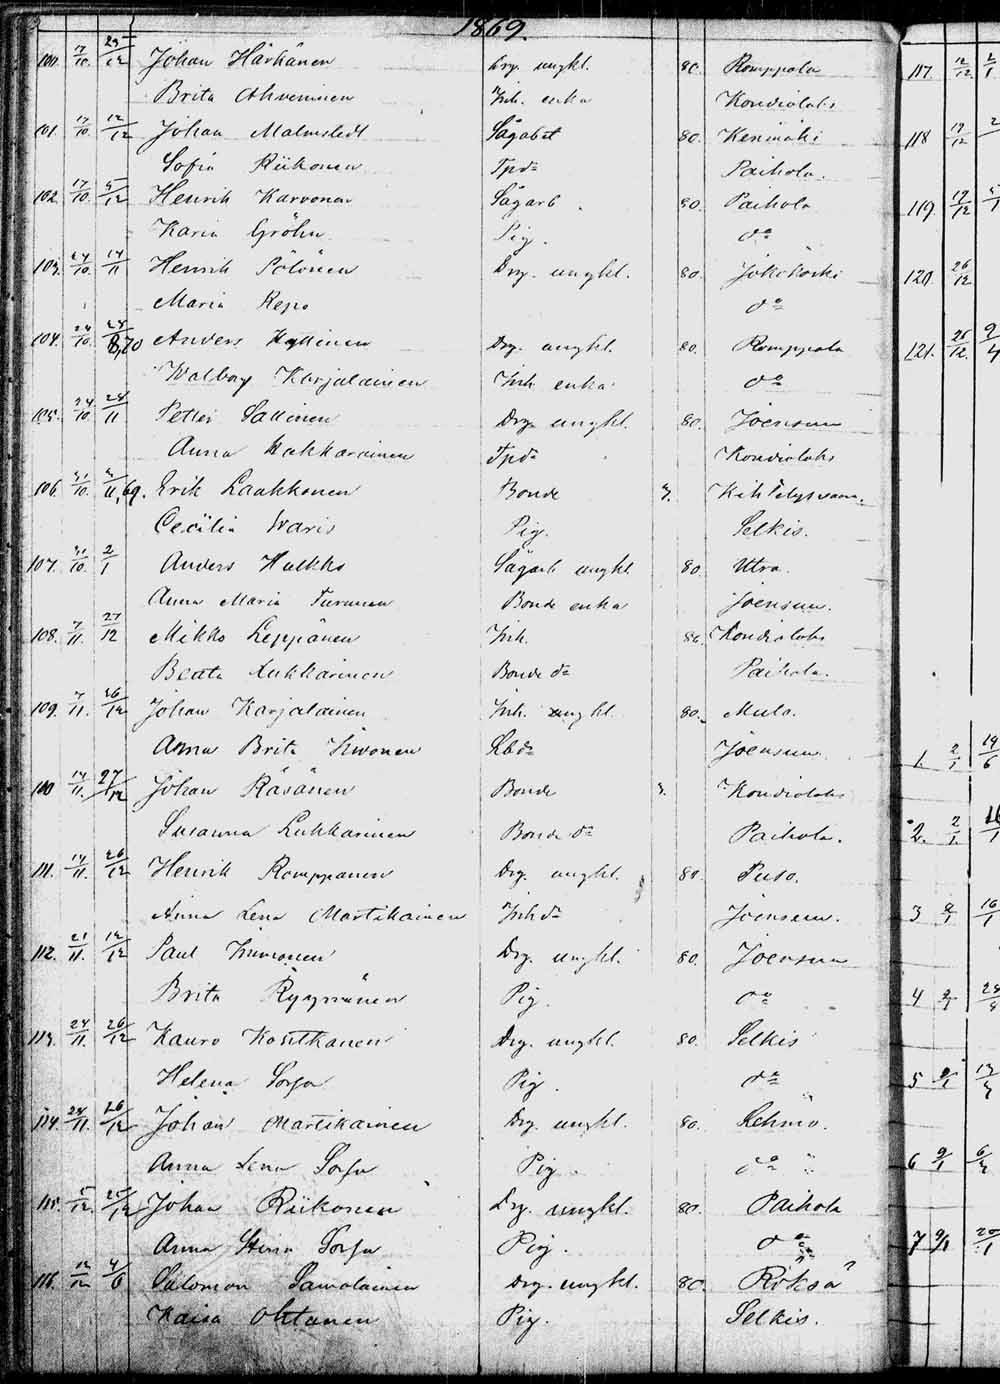 1869.
100. 17/10. 29/12 Johan Härkänen Drg. ungkl. 80. Romppala
Brita Ahveninen Inh. enka Kondiolaks
101. 17/10. 12/12 Johan Malmstedt Sågabet 80. Kerimäki
Sofia Riikonen Tpdr Paihola.
102. 17/10. 5/12 Henrik Karvonen Sågarb. 80. Paihola
Karin Gröhn Pig. do
103. 24/10. 14/11 Henrik Pölönen Drg. ungkl. 80. Jokikoski
Maria Repo do
104. 24/10. 8,70 Anders Hyttinen Drg. ungkl. 80. Romppala
Walborg Karjalainen Inh. enka do
105. 24/10. 28/11 Petter Sallinen Drg. ungkl. 80. Joensuu
Anna Kakkarainen Tpdr Kondiolaks
106. 31/10. 11,69. Erik Laakkonen Bonde 3. Kih
Cecilia Waris Pig. Selkis.
107. 31/10. 2/1 Anders Hulkko Sågarb ungkl 80. Utra.
Anna Maria Turunen Bonde enka Joensuu.
108. 7/11. 27/12 Mikko Leppänen Inh. 80. Kondiolaks
Beata Lukkarinen Bonde dr Paihola.
109. 7/11. 26/12 Johan Karjalainen Inh. ungkl. 80. Mulo.
Anna Brita Kinonen Lbdr Joensuu.
110 14/11. 27/12 Johan Räsänen Bonde 3. Kondiolaks
Susanna Lukkarinen Bonde dr Paihola.
111. 14/11. 26/12 Henrik Romppanen Drg. ungkl. 80. Puso.
Anna Lena Martikainen Inhdr Joensuu.
112. 21/11. 12/12 Paul Kinnonen Drg. ungkl. 80. Joensuu
Brita Ryynänen Pig. do
113. 24/11. 26/12 Lauro Kostkanen Drg. ungkl. 80. Selkis
Helena Sorsa Pig. do
114. 24/11. 26/12 Johan Martikainen Drg. ungkl. 80. Lehmo.
Anna Lena Sorsa Pig. do
115. 5/12. 26/12 Johan Riikonen Drg. ungkl. 80. Paihola
Anna Stina Sorsa Pig. do
116. 12/12 4/6 Salomon Sawolainen Drg. ungkl. 80. Röksä?
Kaisa Ohtonen Pig. Selkis.
117. 12/12 2/1
118 19/12 2
119. 19/12
120. 26/12
121. 26/12. 2/4
1. 2/1 19/6
2. 2/1.
3 9/1 16/1
4 9/1
5 9/1
6 9/1
7 9/1 20/1